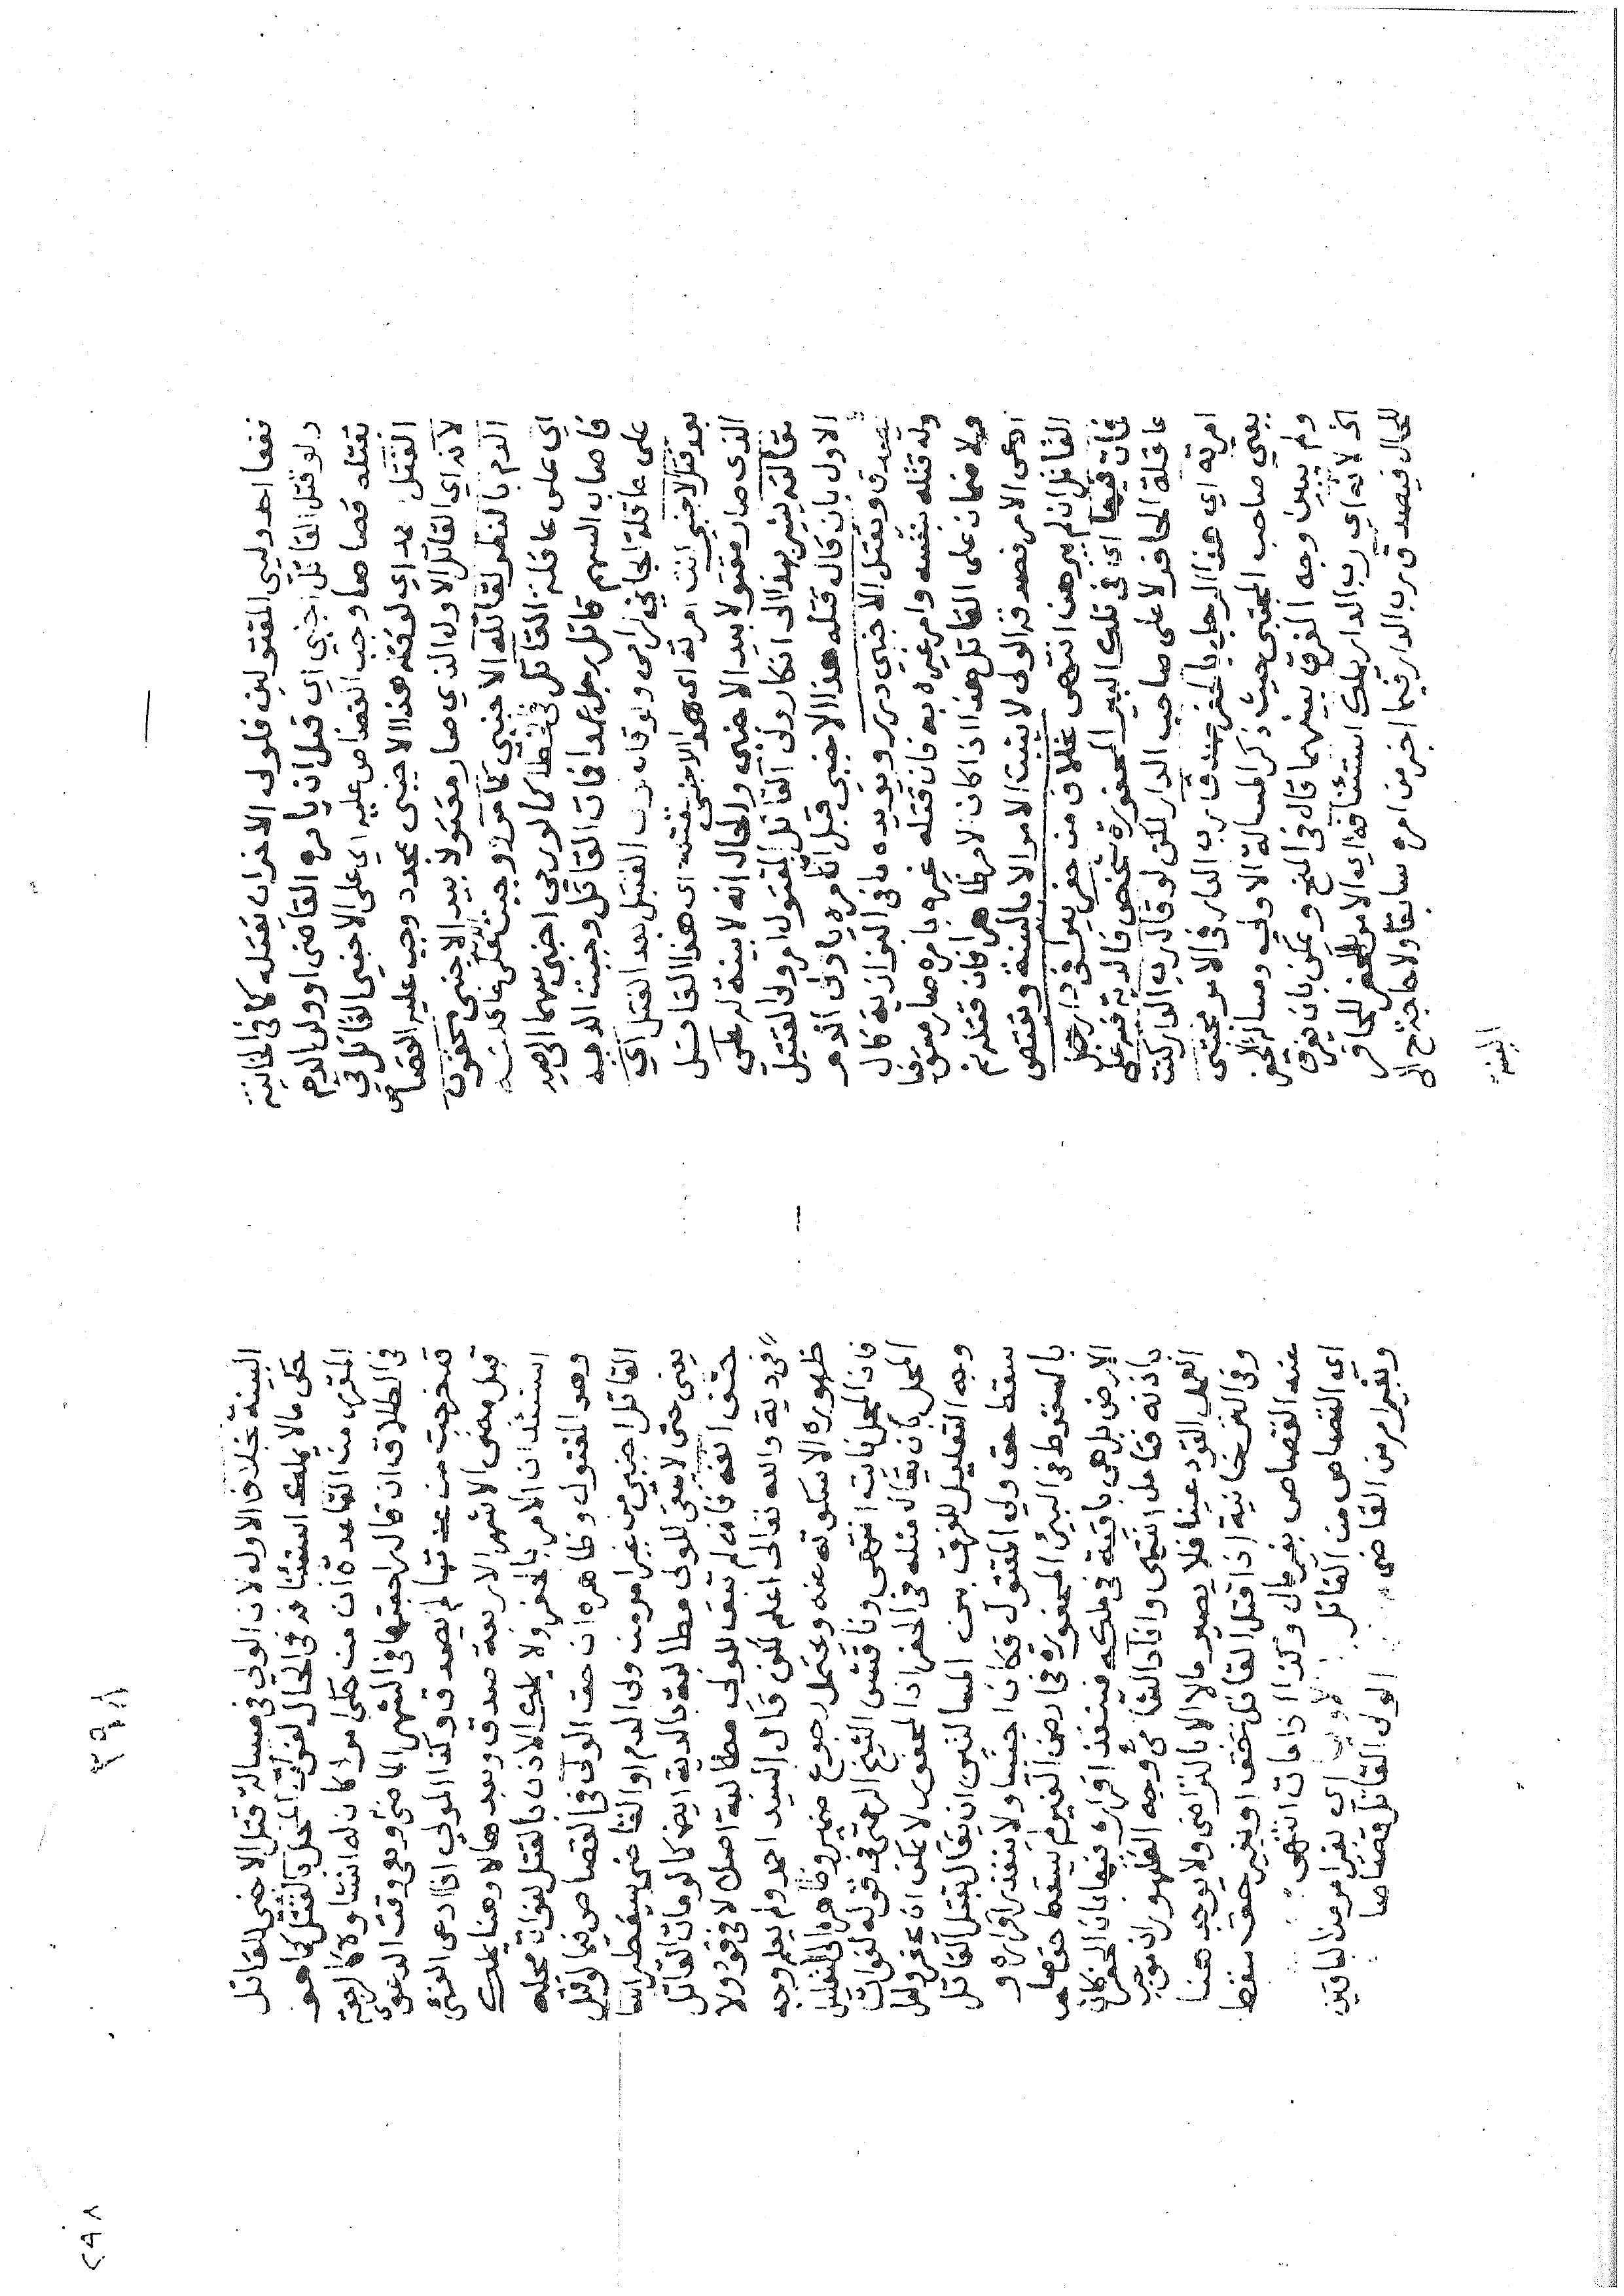 نفعا احد وليى المقتولين فلولى الاخران يقتله كما فى الخانية
ولو قتل القاتل اجنبي اي قبل ان يامره القاضى او ولى الدم
بقتله قصاصا وجب القصاص عليه اي على الاجنبي القاتل في
القتل عمدا اي لو قتله هذا الاجنبى بمحدد وجب عليه القصاص
لانه اي القاتل الاول الذي صار مقتولا بيد الاجنبى محقون
الدم بالنظر لقاتله الاجنبي كما مر ووجبت الدية على عاقلته
اي على عاقلة القاتل فى الخطا كما لو رمى اجنبى سهما الى صيد
فاصاب السهم قاتل رجل عمدا فمات القاتل وجبت الدية
على عاقلة الجاني الرامى ولو قال ولى القتيل بعد القتل اي
بعد قتل الاجنبي انت امرته اى هذا الاجنبى بقتله اى هذا القاتل
الذى صار مقتولا بيد الاجنبى والحال انه لا بينة له على
مقالته يشير بهذا الى انكار ولى القاتل المقتول امر ولى القتيل
الاول بان قال قتله هذا الاجنبى قبل ان تامره يا ولى الدم
لا يصدق ويقتل الاجنبي درر ويويده ما فى البزازية قال
وله قتله بنفسه وامر غيره به فان قتله غيره بامره صار مستوفيا
ولا ضمان على القاتل هذا اذا كان الامر ظاهرا فان قتله ثم
ادعى الامر فصدقه الولى لا يثبت الامر الا بالبينة ويقتص
القاتل ان لم يبرهن انتهى بخلاف من حفر بيرا فى دار رجل
فمات فيها اى فى تلك البير المحفورة شخص فالدية فيه على
عاقلة الحافر لا على صاحب الدار لكن لو قال رب الدار كنت
امرته اي هذا الرجل بالحفر صدق رب الدار فى الامر مجتبى
يعني صاحب المجتبى حيث ذكر المسالة الاولى ومسالة الحفر
ولم يبين وجه الفرق بينهما قال فى المنح ويمكن بان يفرق
الخ لانه اي رب الدار يملك استئنافه اي الامر بالحفر للحافر
للحال فيصدق رب الدار فيما اخبر من امره سابقا ولا حاجة ح الى
البينة
البينة بخلاف الاول لان الولى فى مسالة قتل الاجنبى للقاتل
حكى ما لا يملك استئنافه فى الحال لفوات المحل بالقتل كما هو
المقرر من القاعدة ان من حكى امرا كان له انشاوه كالرجعة
فى الطلاق ان قال راجعتها فى الشهر الماضى وهى وقت الدعوى
قد خرجت من عدتها لم يصدق وكذا المولي اذا ادعى الفئ
قبل مضى الاشهر الاربعة صدق وبعدها لا وهنا يملك
استئذان الامر بالحفر ولا يملك الاذن بالقتل لفوات محله
وهو المقتول وظاهره ان حق الولى فى القصاص فيما لو قتل
القاتل اجنبي من غير امر من ولى الدم او القاضى يسقط راسا
يعنى حتى لا يبقى للولى مطالبة بالدية ايضا كالو مات القاتل
حتف انفه فانه لم يبق للولى مطالبة اصلا لا فى قود ولا
فى دية والله تعالى اعلم لكن قال السيد احمد ولم يعلم وجه
ظهوره الا سكوته عنه ويحتمل رجوع ضمير وظاهره الى التعليل
فان المحل فايت انتهى وناقش الشيخ الرحمتى فى قوله لفوات
المحل بان يقال مثله فى الحفر اذ المحفور لا يمكن ان يحفر ولعل
وجه التعليل للفرق بين المسالتين ان يقال بقتل القاتل
سقط حق ولي المقتول فكان اجنبيا ولا ينفذ اقراره و
بالسقوط فى البير المحفورة فى ارض الغير لم يسقط حق صاحب
الارض بل هى باقية فى ملكه فينفذ اقراره فيها بان الحفر كان
باذنه فتامل انتهى وافاد الشامى وجه الظهور ان موجب
العمل القود عينا فلا يصير مالا الا بالتراضى ولا يوجد هنا
وفى التترخانية اذا قتل القاتل بحق او بغير حق سقط
عنه القصاص بغير مال وكذا اذا مات انتهى
اي القصاص من القاتل اى بغير امر من الباقين
وبغير امر من القاضى الولى القاتل قصاصا
٣٩٨
٢٩٨